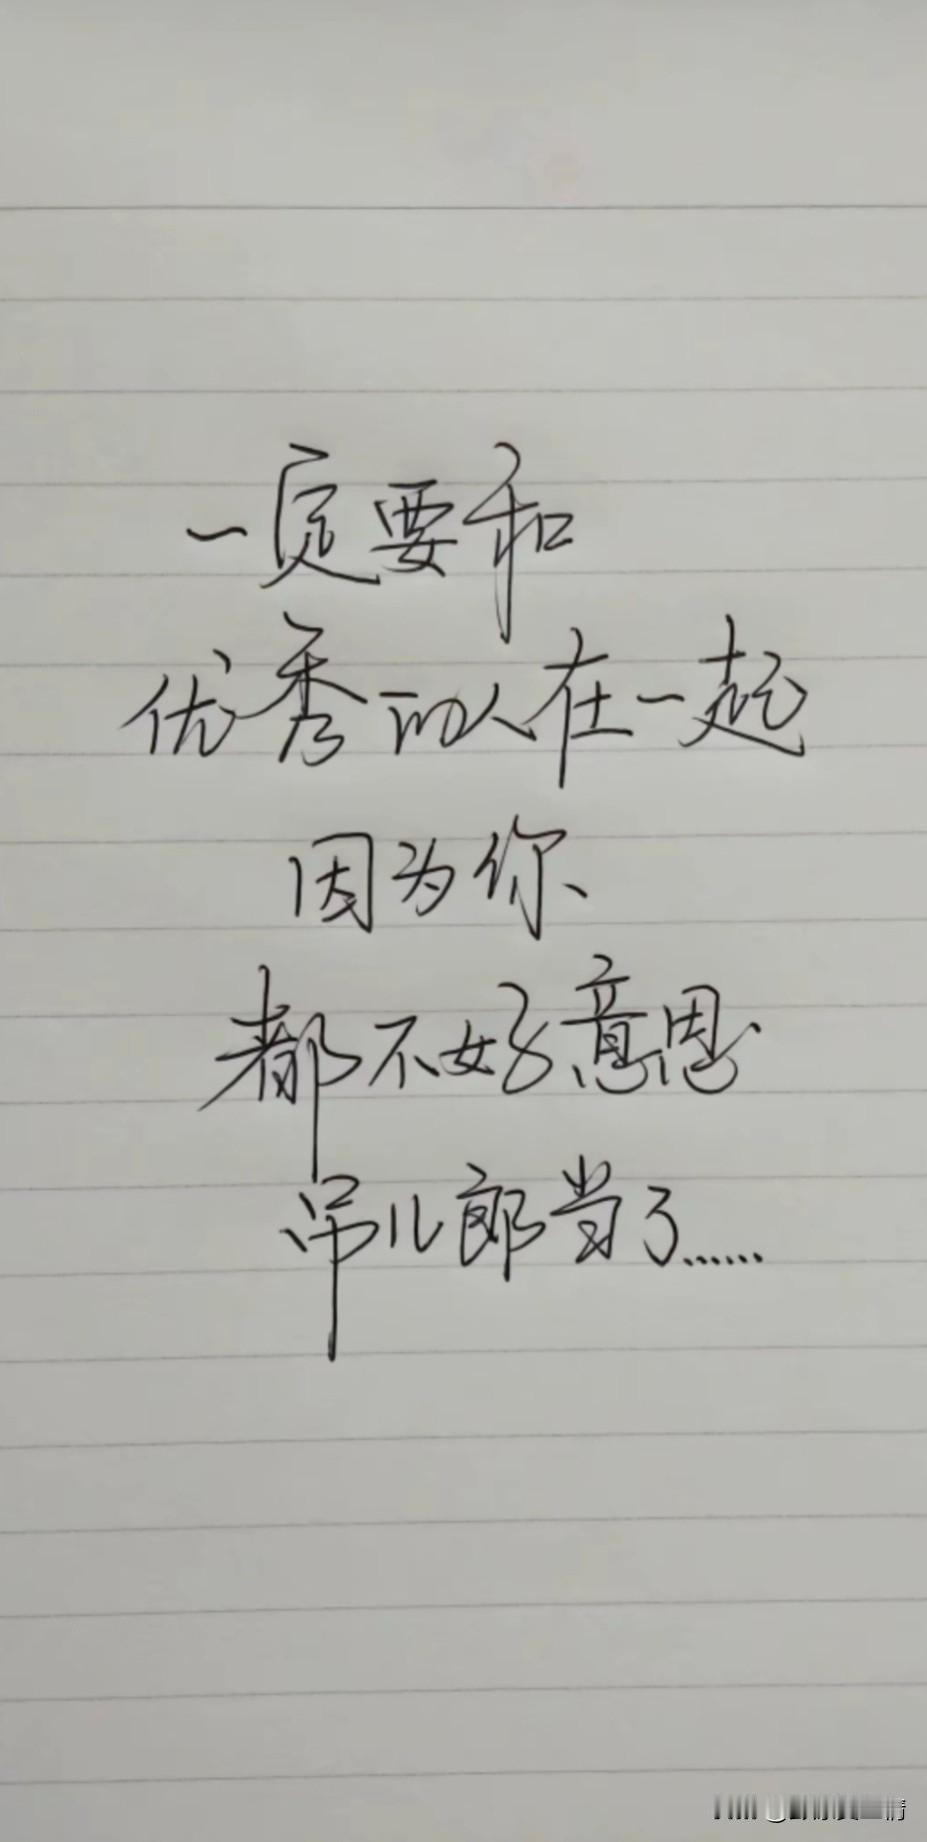 一定要和
优秀的人在一起
因为你
都不好意思
吊儿郎当了……